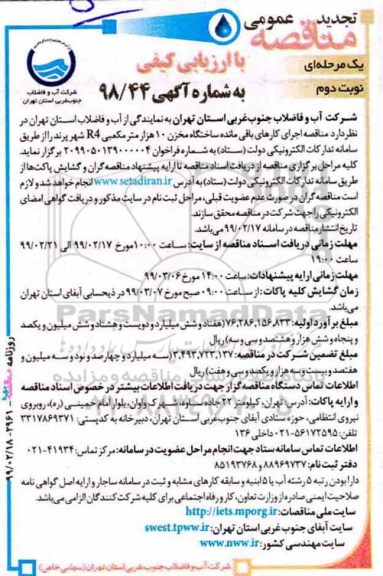 تجدید مناقصه عمومی
یک مرحله‌ای
با ارزیابی کیفی
نوبت دوم
به شماره آگهی ۹۸/۴۴
شرکت آب و فاضلاب
جنوب‌غربی استان تهران
شرکت آب و فاضلاب جنوب‌غربی استان تهران به نمایندگی از آب و فاضلاب استان تهران در
نظر دارد مناقصه اجرای کارهای باقی مانده ساختگاه مخزن ۱۰ هزار متر مکعبی R4 شهر پرند را از طریق
سامانه تدارکات الکترونیکی دولت (ستاد) به شماره فراخوان ۲۰۹۹۰۵۰۱۳۹۰۰۰۰۰۴ برگزار نماید.
کلیه مراحل برگزاری مناقصه از دریافت اسناد مناقصه تا ارایه پیشنهاد مناقصه گران و گشایش پاکت‌ها از
طریق سامانه تدارکات الکترونیکی دولت (ستاد) به آدرس www.setadiran.ir انجام خواهد شد و لازم
است مناقصه گران در صورت عدم عضویت قبلی، مراحل ثبت نام در سایت مذکور و دریافت گواهی امضای
الکترونیکی را جهت شرکت در مناقصه محقق سازند.
تاریخ انتشار مناقصه در سامانه ۹۹/۰۲/۱۷ می‌باشد.
مهلت زمانی دریافت اسناد مناقصه از سایت: ساعت ۱۰:۰۰ مورخ ۹۹/۰۲/۱۷ الی ۹۹/۰۲/۲۱
ساعت ۱۹:۰۰
مهلت زمانی ارایه پیشنهادات: ساعت ۱۴:۰۰ مورخ ۹۹/۰۳/۰۶
زمان گشایش کلیه پاکات: از ساعت ۰۹:۰۰ صبح مورخ ۹۹/۰۳/۰۷ در ذیحسابی آبفای استان تهران
می‌باشد.
مبلغ برآورد اولیه: ۷۶,۲۸۶,۱۵۶,۸۳۳ (هفتاد و شش میلیارد و دویست و هشتاد و شش میلیون و یکصد
و پنجاه و شش هزار و هشتصد و سی و سه) ریال
مبلغ تضمین شرکت در مناقصه: ۳,۴۹۳,۷۲۳,۱۳۷ (سه میلیارد و چهارصد و نود و سه میلیون و
هفتصد و بیست و سه هزار و یکصد و سی و هفت) ریال
اطلاعات تماس دستگاه مناقصه گزار جهت دریافت اطلاعات بیشتر در خصوص اسناد مناقصه
و ارایه پاکات: آدرس: تهران، کیلومتر ۲۲ جاده ساوه، شهرک واوان، بلوار امام خمینی (ره)، روبروی
نیروی انتظامی، حوزه ستادی آبفای جنوب‌غربی استان تهران، دبیرخانه به کدپستی: ۳۳۱۷۸۶۹۳۷۱
تلفن: ۵۶۱۷۲۵۹۵-۰۲۱ داخلی ۱۳۶
اطلاعات تماس سامانه ستاد جهت انجام مراحل عضویت در سامانه: مرکز تماس: ۴۱۹۳۴-۰۲۱
دفتر ثبت نام: ۸۸۹۶۹۷۳۷ و ۸۵۱۹۳۷۶۸
دارا بودن رتبه ۵ رشته آب یا ۵ ابنیه و سابقه کارهای مشابه و ثبت در سامانه ساجار و ارایه اصل گواهی نامه
صلاحیت ایمنی صادره از وزارت تعاون، کار و رفاه اجتماعی برای کلیه شرکت کنندگان الزامی می‌باشد.
سایت ملی مناقصات: http://iets.mporg.ir
سایت آبفای جنوب غربی استان تهران: swest.tpww.ir
سایت مهندسی کشور: www.nww.ir
شرکت آب و فاضلاب جنوب غربی استان تهران (سهامی خاص)
ParsNamadData